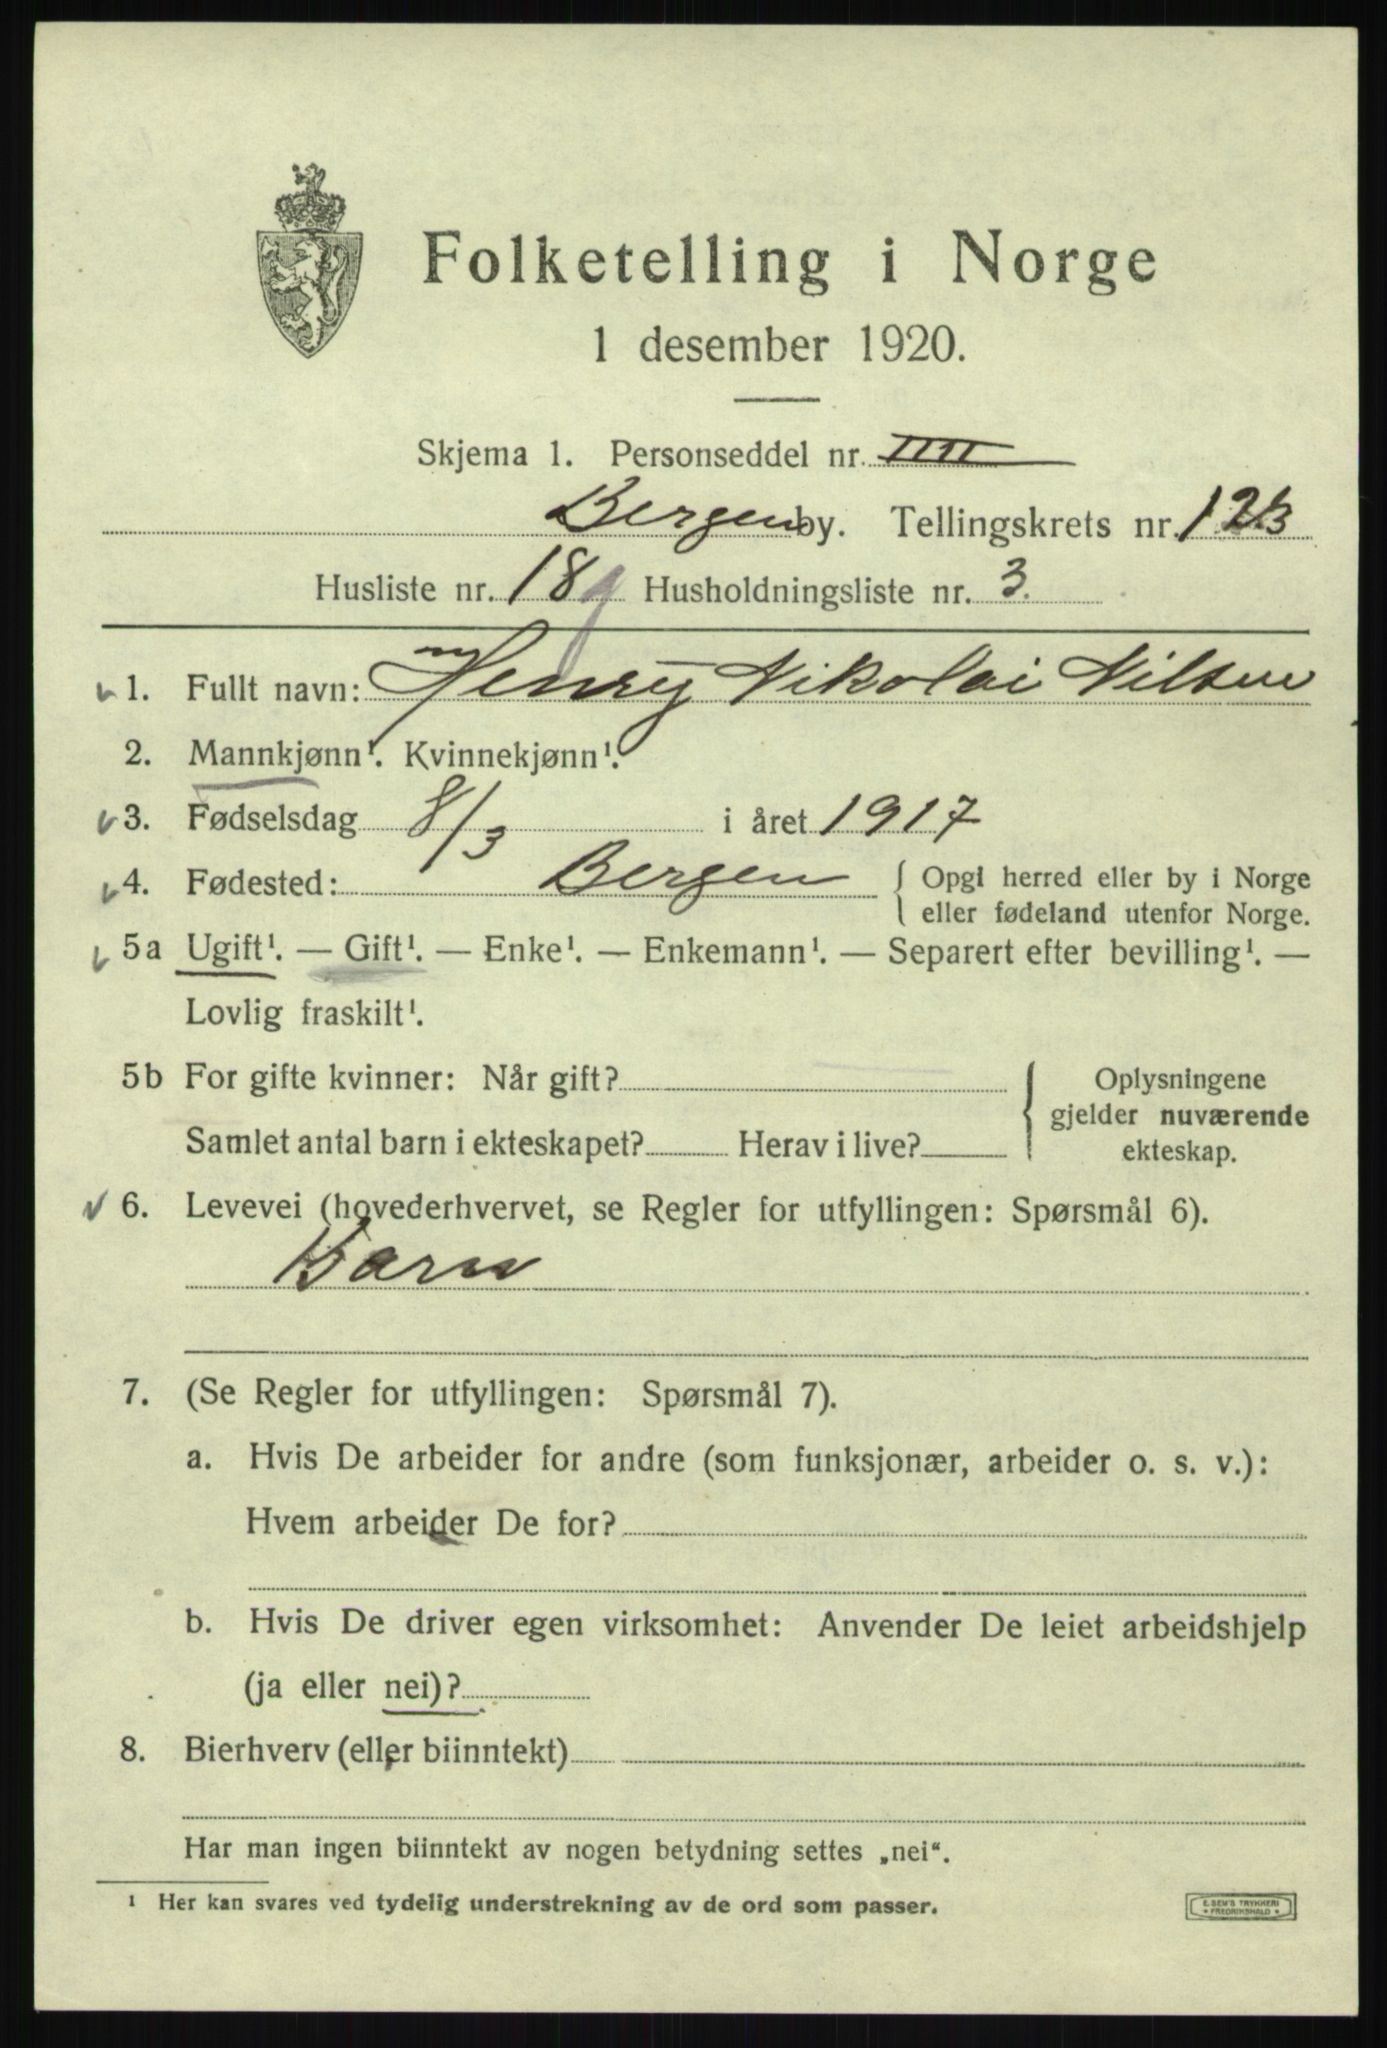 Folketelling i Norge
1 desember 1920.
Skjema 1. Personseddel nr. IIII
Bergen by. Tellingskrets nr. 123
Husliste nr. 18 Husholdningsliste nr. 3.
1. Fullt navn: Henry Nikolai Nilsen
2. Mannkjønn¹. Kvinnekjønn¹.
3. Fødselsdag 8/3 i året 1917
4. Fødested: Bergen { Opgi herred eller by i Norge
eller fødeland utenfor Norge.
5a Ugift¹. — Gift¹. — Enke¹. — Enkemann¹. — Separert efter bevilling¹. —
Lovlig fraskilt¹.
5b For gifte kvinner: Når gift? { Oplysningene
gjelder nuværende
Samlet antal barn i ekteskapet? Herav i live?
ekteskap.
6. Levevei (hovederhvervet, se Regler for utfyllingen: Spørsmål 6).
Barn
7. (Se Regler for utfyllingen: Spørsmål 7).
a. Hvis De arbeider for andre (som funksjonær, arbeider o. s. v.):
Hvem arbeider De for?
b. Hvis De driver egen virksomhet: Anvender De leiet arbeidshjelp
(ja eller nei)?
8. Bierhverv (eller biinntekt)
Har man ingen biinntekt av nogen betydning settes „nei“.
¹ Her kan svares ved tydelig understrekning av de ord som passer.
E. SEM'S TRYKKERI
FREDRIKSHALD